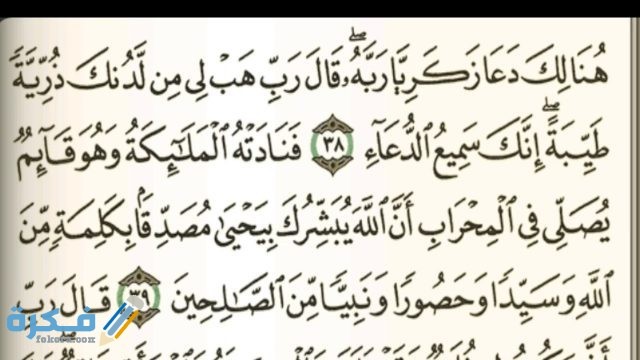 هُنَالِكَ دَعَا زَكَرِيَّا رَبَّهُۥۖ قَالَ رَبِّ هَبۡ لِى مِن لَّدُنكَ ذُرِّيَّةٗ
طَيِّبَةًۖ إِنَّكَ سَمِيعُ ٱلدُّعَآءِ ٣٨ فَنَادَتۡهُ ٱلۡمَلَٰٓئِكَةُ وَهُوَ قَآئِمٞ
يُصَلِّى فِى ٱلۡمِحۡرَابِ أَنَّ ٱللَّهَ يُبَشِّرُكَ بِيَحۡيَىٰ مُصَدِّقَۢا بِكَلِمَةٖ مِّنَ
ٱللَّهِ وَسَيِّدٗا وَحَصُورٗا وَنَبِيّٗا مِّنَ ٱلصَّٰلِحِينَ ٣٩ قَالَ رَبِّ
فكرة